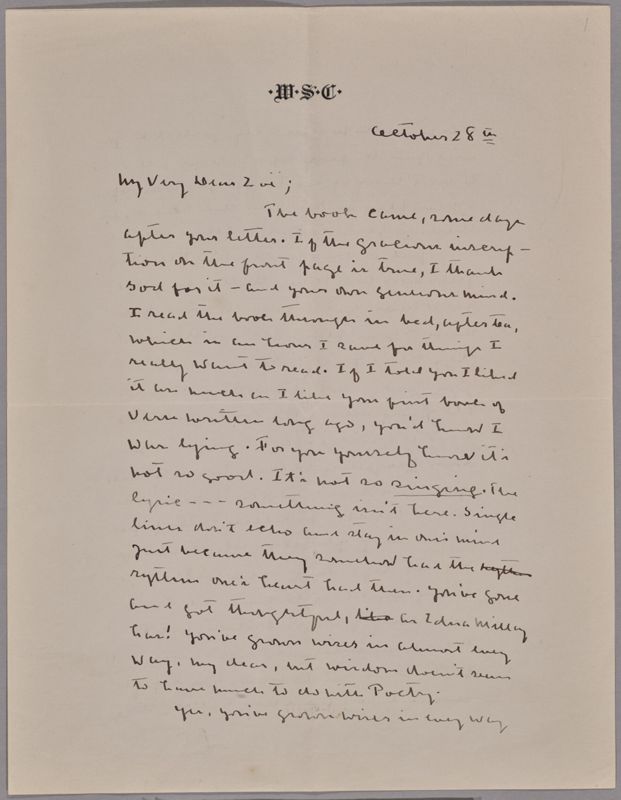 1
·W·S·C·
October 28th
My Very Dear Zoë;
The book came, some days
after your letter. If the gracious inscrip-
tion on the front page is true, I thank
God for it – and your own generous mind.
I read the book through in bed, after tea,
which is an hour I save for things I
really want to read. If I told you I liked
it as much as I like your first book of
Verse written long ago, you'd know I
was lying. For you yourself know it's
not so good. It's not so singing. The
lyric - - - something isn't here. Single
lines don't echo and stay in one's mind
just because they somehow had the rythm
rythm one's heart had then. You've gone
and got thoughtful, like as Edna Millay
has! You've grown wiser in almost every
way, my dear, but wisdom doesn't seem
to have much to do with Poetry.
Yes, you've grown wiser in every way